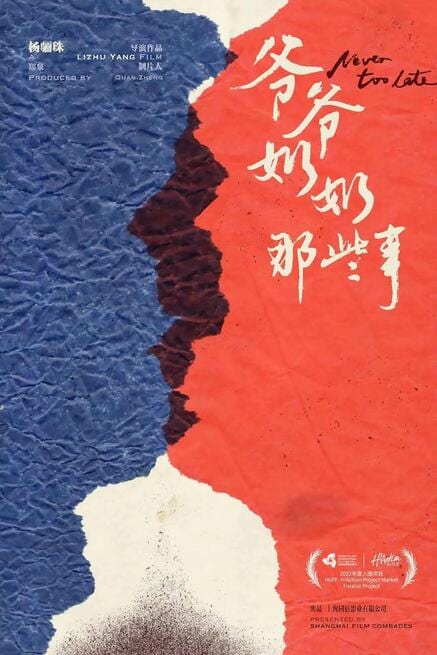 杨骊珠 导演作品
A LIZHU YANG FILM
郑泉 制片人
PRODUCED BY QUAN ZHENG
Never
too Late
爷爷
奶奶
那些事
2022年度入围项目
HIIFF H!Action Project Market
Finalist Project
出品 上海同括影业有限公司
PRESENTED BY
SHANGHAI FILM COMRADES